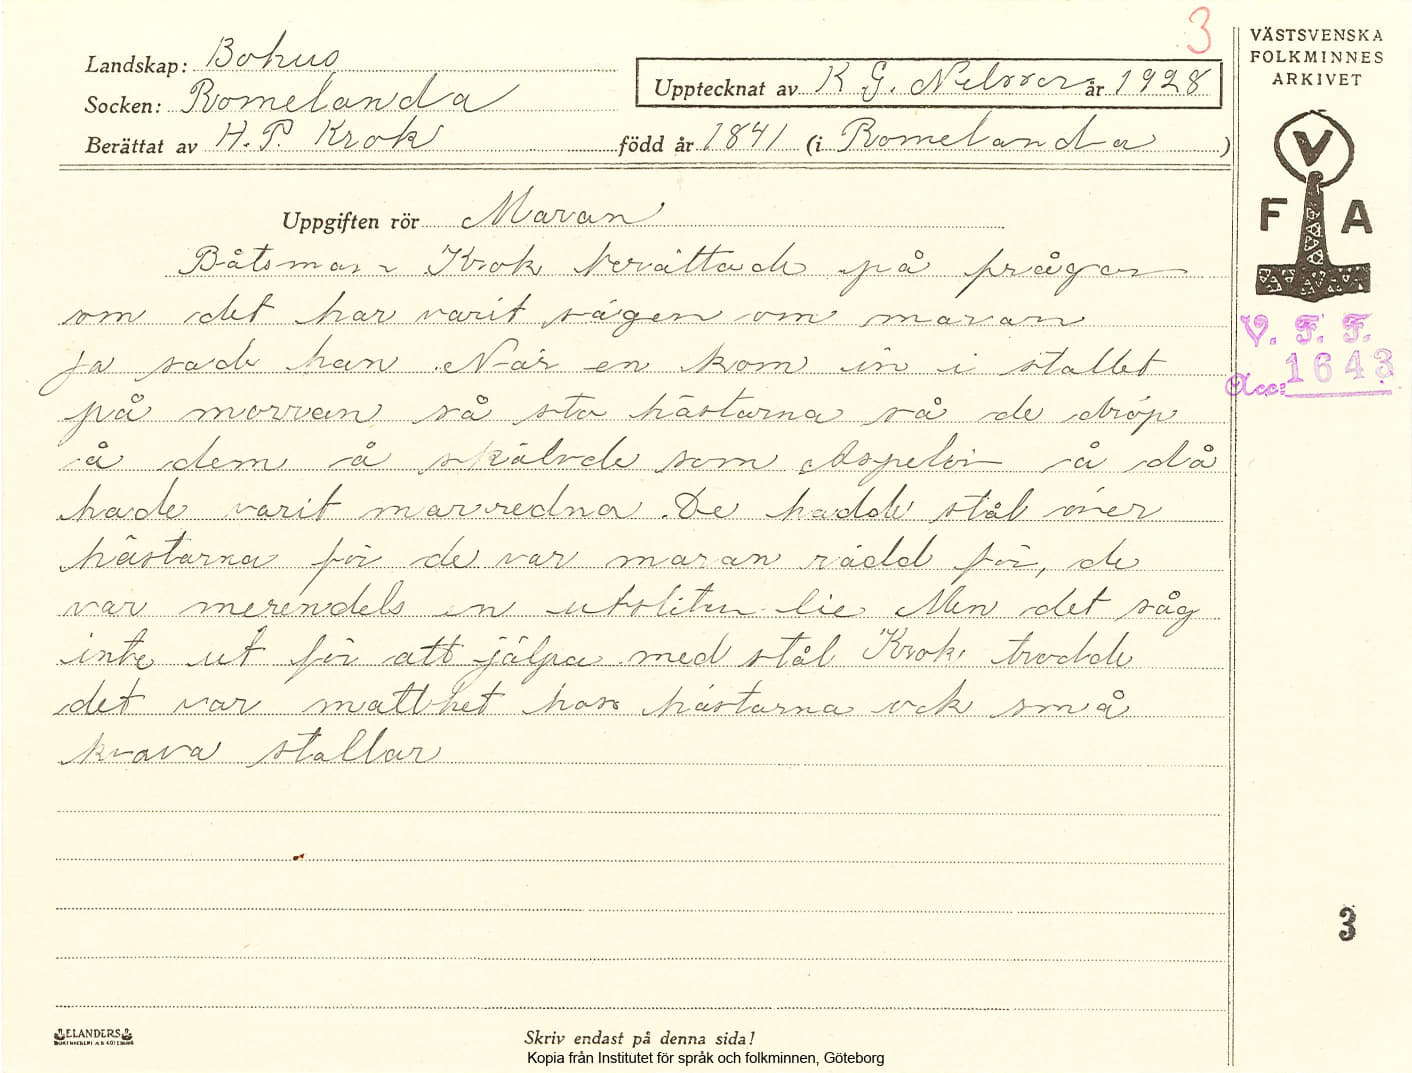 3
VÄSTSVENSKA
FOLKMINNES
ARKIVET
Landskap: Bohus
Socken: Romelanda
Upptecknat av K G. Nelsson år 1928
Berättat av H. P. Krok född år 1841 (i Romelanda)
V
F A
Uppgiften rör Maran
Båtsman Krok berättade på frågan
om det har varit sägen om maran
ja sade han. När en kom in i stallet
på morran så sto hästarna så de dröp
å dem å skälvde som Aspelöv å då
hade varit marredna. De hadde stål över
hästarna för de var maran rädd för, de
var merendels en utsliten lie Men det såg
inte ut för att jälpa med stål Krok trodde
det var matthet hos hästarna ock små
kvava stallar
V. F. F.
Acc: 1643
3
ELANDERS
BOKTRYCKERI A.B. GÖTEBORG
Skriv endast på denna sida!
Kopia från Institutet för språk och folkminnen, Göteborg